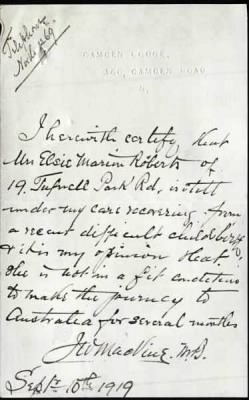 Telephone
North 269
CAMDEN LODGE,
360, CAMDEN ROAD
N.
I herewith certify that
Mrs Elsie Marion Roberts of
19. Tufnell Park Rd, is still
under my care recovering from
a recent difficult childbirth
& it is my opinion that
she is not in a fit condition
to make the journey to
Australia for several months
M.B.
Sept. 10th 1919